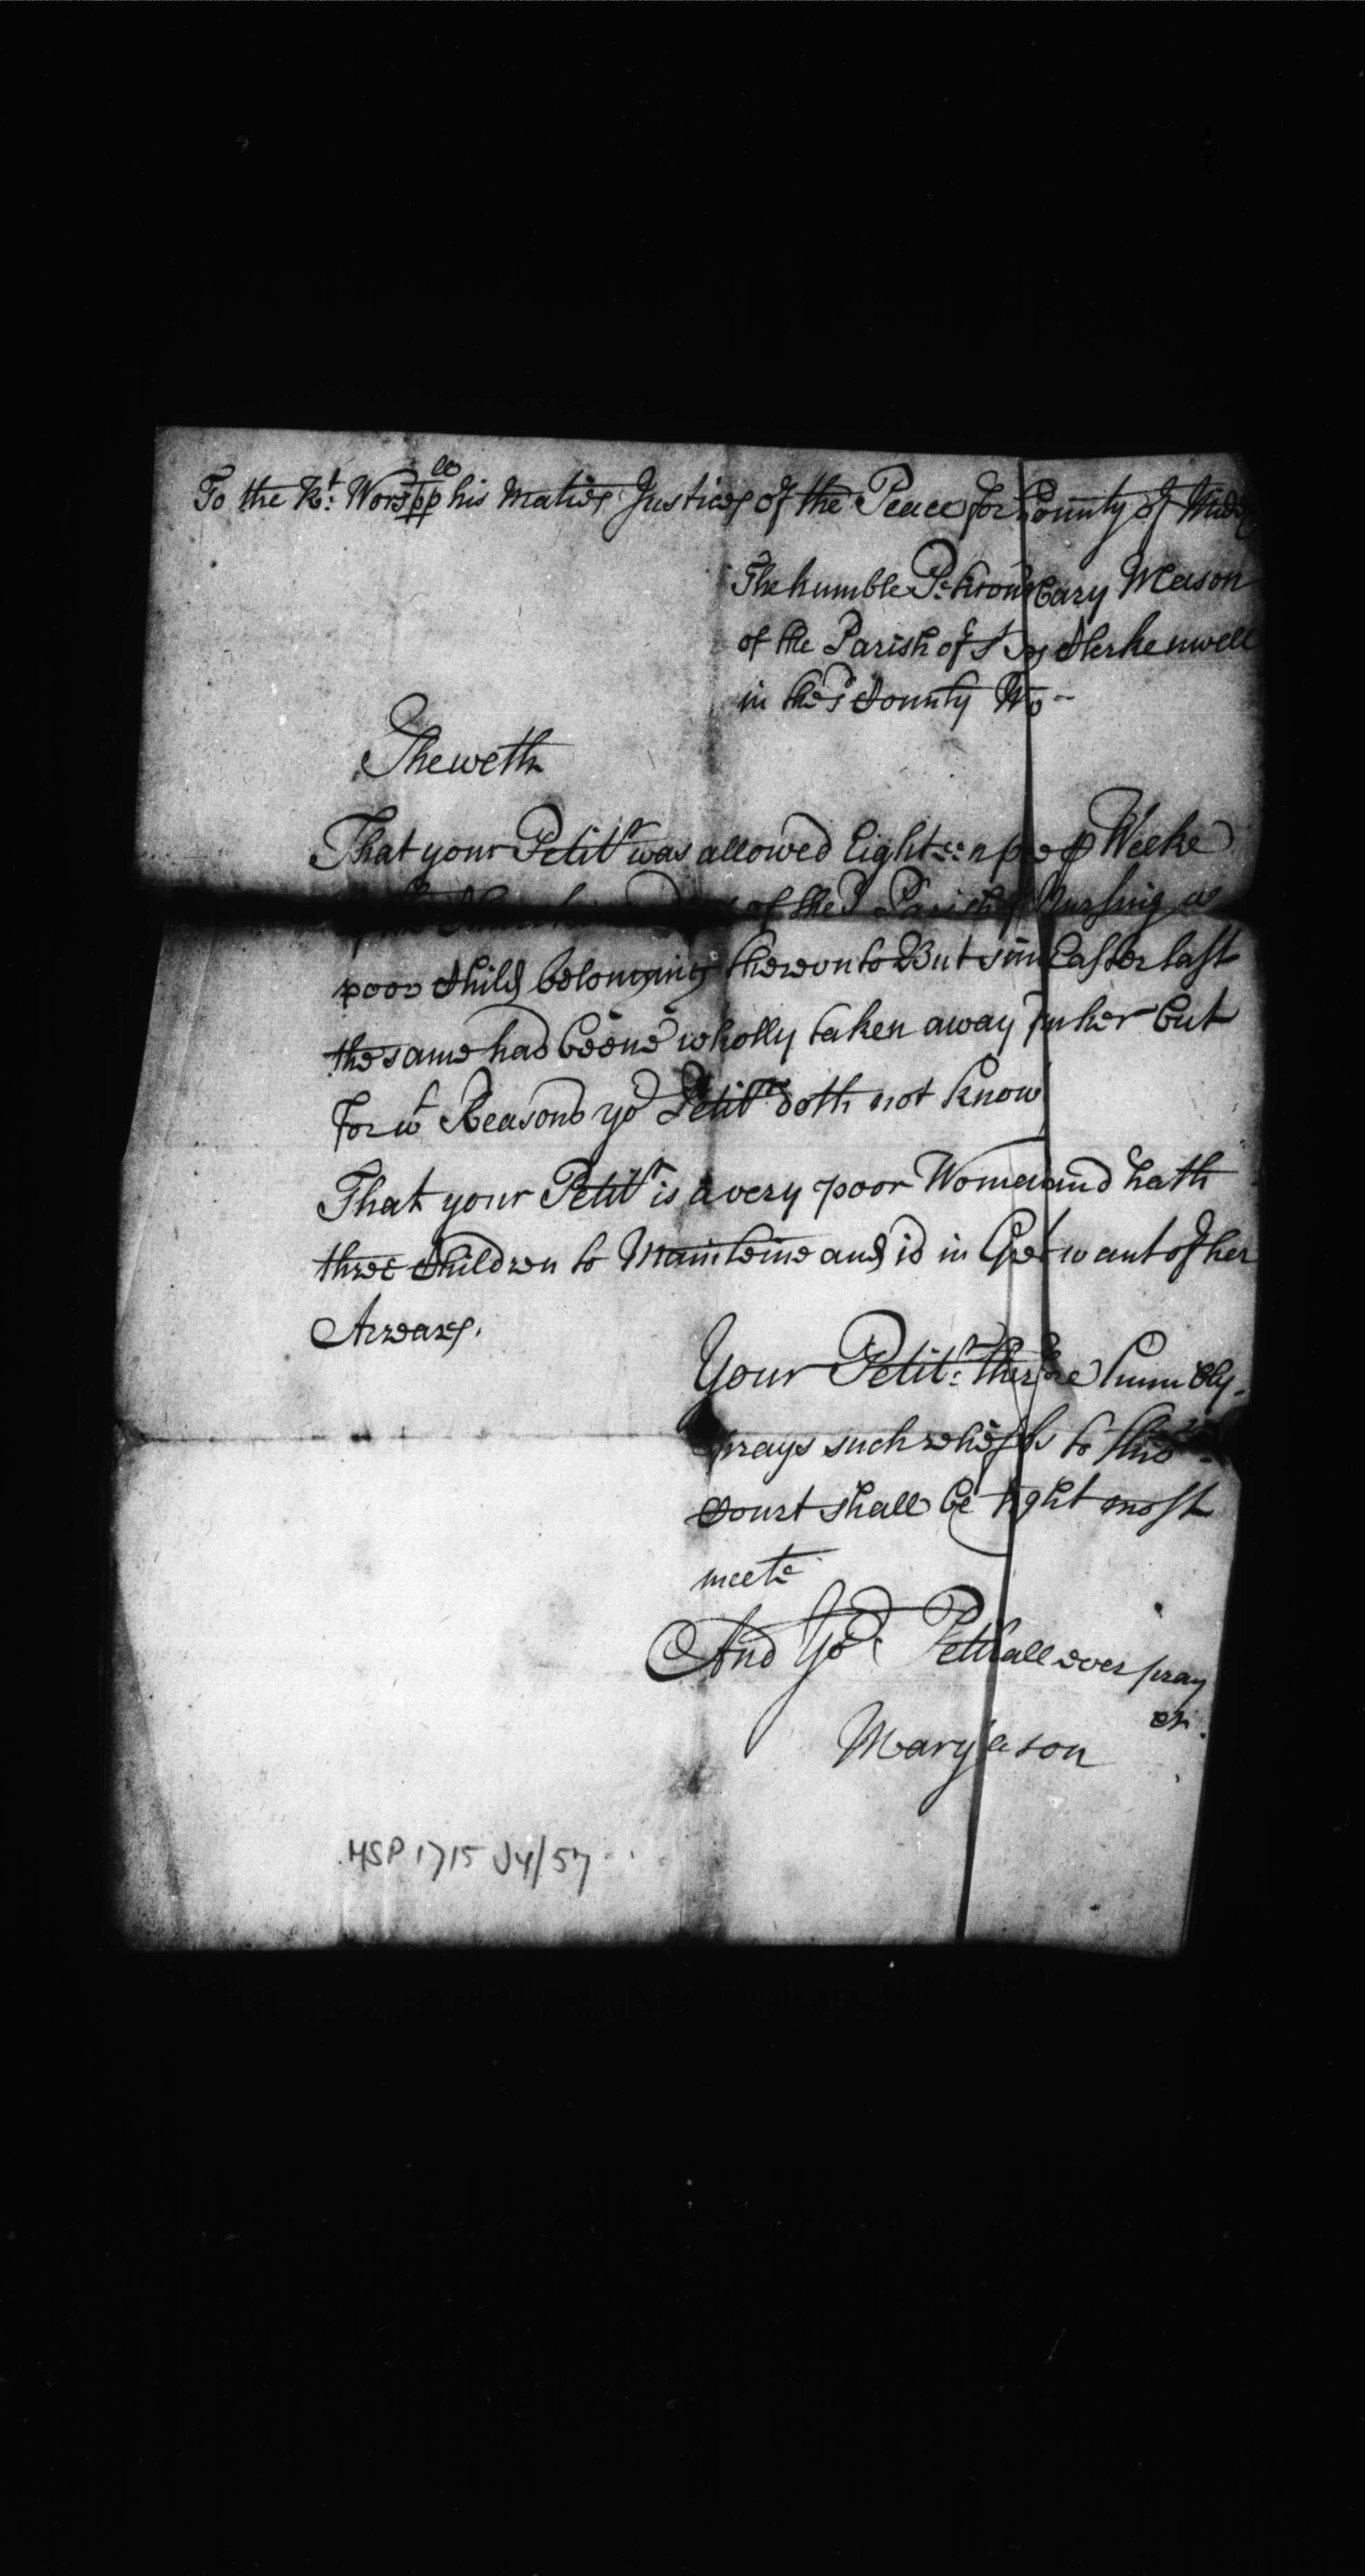 To the Rt. Worspple his Maties Justices of the Peace for County of Midd
The humble Peticon Mary Meason
of the Parish of Clerkenwell
in the sd County Wo--
Sheweth
That your Petitr was allowed Eighteen p Weeke
of the sd Parish Nursing a
poor Child belonging thereunto But Easter last
the same had beene wholly taken away her but
For wt Reasons yor Petitr doth not know
That your Petitr is a very poor Woman and hath
three Children to Mainteine and is in Great want of her
Arreares.
Your Petitr. therfore humbly
prays such reliefe as to this
Court shall be thought most
meete
And Yor Pet shall ever pray
etc.
Mary eason
MSP 1715 Jy/57